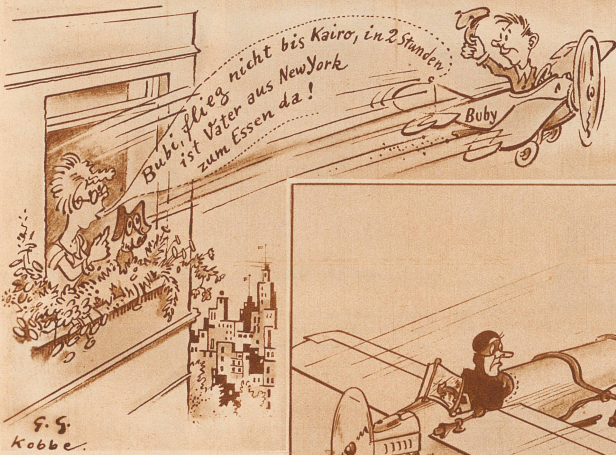 Bubi, flieg nicht bis Kairo, in 2 Stunden
ist Vater aus NewYork
zum Essen da!
Buby
G. G.
Kobbe.